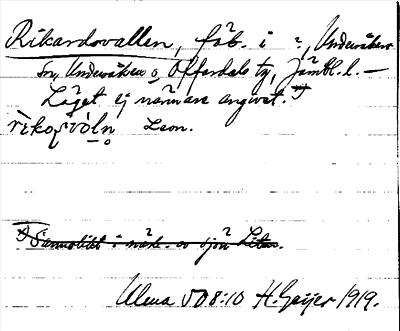 Rikardsvallen, fäb. i ?, Undersåkers
sn, Undersåkers o. Offerdals tg, Jämtl. l. —
Läget ej närmare angivet. *)
rìkaṣvòln̥ Leon.
*) Sannolikt i närh. av sjön Liten.
Ulma 508:10 H. Geijer 1919.